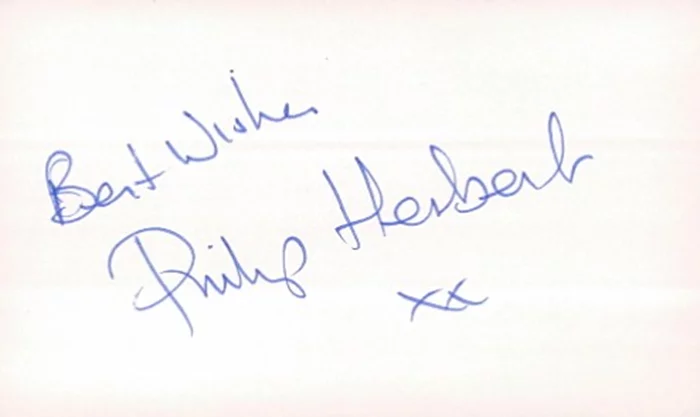 Best Wishes
Philip Herbert
xx